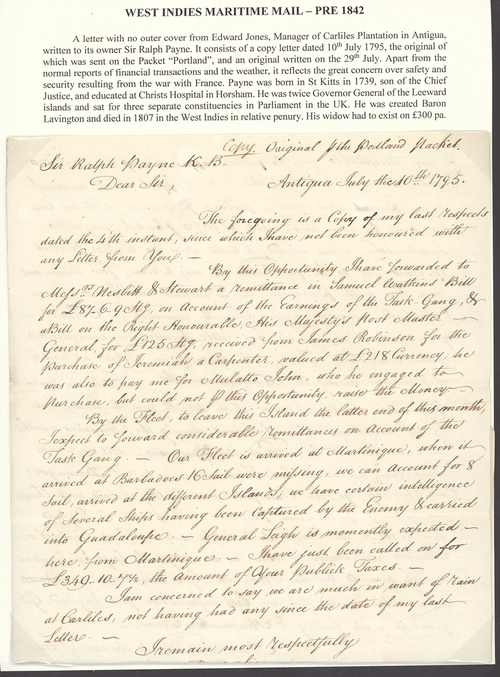 WEST INDIES MARITIME MAIL – PRE 1842
A letter with no outer cover from Edward Jones, Manager of Carliles Plantation in Antigua,
written to its owner Sir Ralph Payne. It consists of a copy letter dated 10th July 1795, the original of
which was sent on the Packet "Portland", and an original written on the 29th July. Apart from the
normal reports of financial transactions and the weather, it reflects the great concern over safety and
security resulting from the war with France. Payne was born in St Kitts in 1739, son of the Chief
Justice, and educated at Christs Hospital in Horsham. He was twice Governor General of the Leeward
islands and sat for three separate constituencies in Parliament in the UK. He was created Baron
Lavington and died in 1807 in the West Indies in relative penury. His widow had to exist on £300 pa.
Copy. Original the Portland Packet.
Sir Ralph Payne K. B.
Dear Sir, Antigua July the 10th 1795.
The foregoing is a Copy of my last respects
dated the 4th instant, since which I have not been honoured with
any Letter from You. —
By this Opportunity I have forwarded to
Messrs Nesbitt & Stewart a remittance in Samuel Watkins Bill
for £87..6..9 Stg, on Account of the Earnings of the Task Gang, &
a Bill on the Right Honourable, His Majesty's Post Master —
General, for £125 Stg, received from James Robinson for the
purchase of Jeremiah a Carpenter, valued at £218 Currency; he
was also to pay me for Mulatto John, who he engaged to
purchase, but could not this Opportunity, raise the Money —
By the Fleet, to leave this Island the latter end of this month,
I expect to forward considerable remittances on Account of the
Task Gang. — Our Fleet is arrived at Martinique, when it
arrived at Barbadoes 16 Sail were missing, we can account for 8
Sail, arrived at the different Islands; we have certain intelligence
of several Ships having been captured by the Enemy & carried
into Guadaloupe. — General Leigh is momently expected —
here, from Martinique — I have just been called on for
£349..10..7½, the Amount of Your Publick Taxes. —
I am concerned to say we are much in want of rain
at Carliles, not having had any since the date of my last
Letter. —
I remain most respectfully